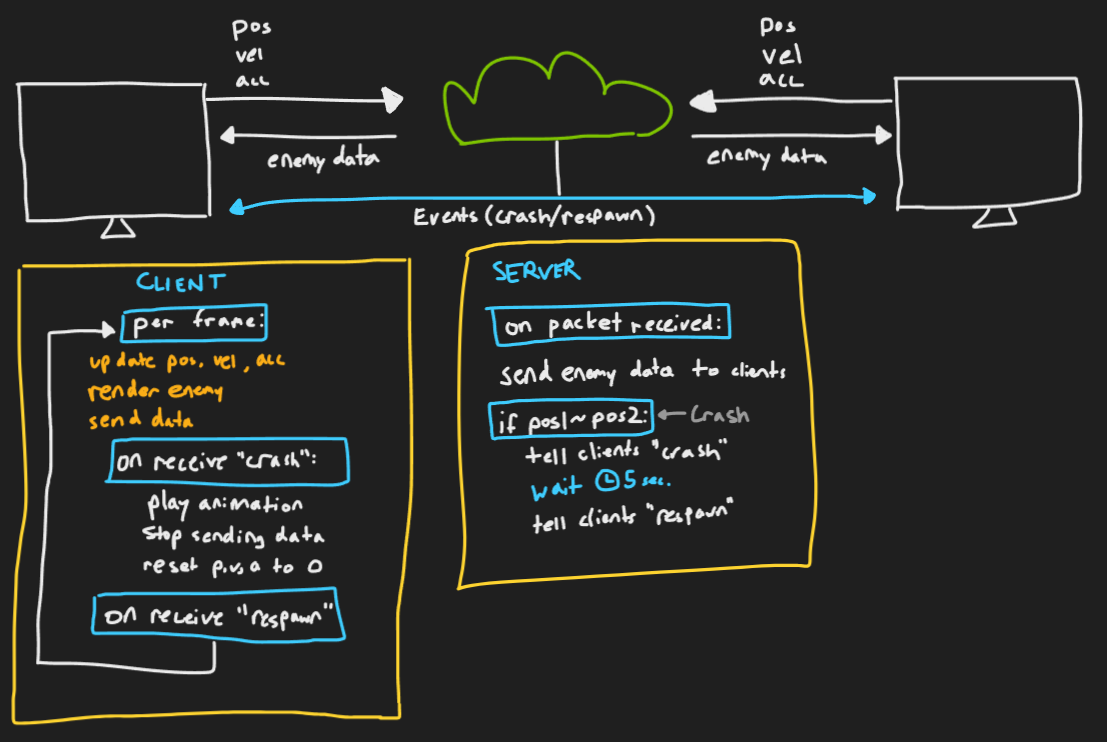 pos
vel
acc
pos
vel
acc
enemy data
enemy data
Events (crash/respawn)
CLIENT
per frame:
update pos, vel, acc
render enemy
send data
on receive "crash":
play animation
stop sending data
reset p,v,a to 0
on receive "respawn"
SERVER
on packet received:
send enemy data to clients
if pos1~pos2: ← Crash
tell clients "crash"
wait 5 sec.
tell clients "respawn"